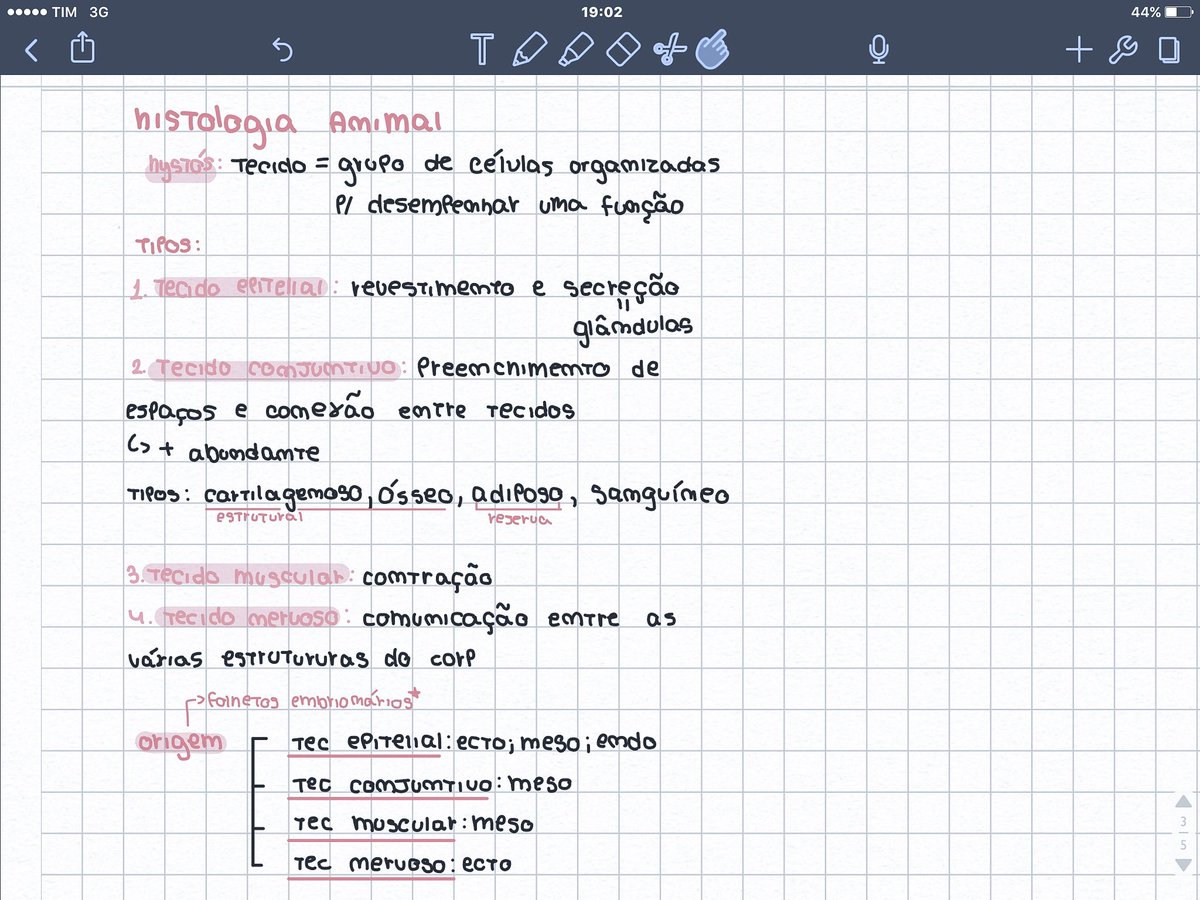 TIM 3G 19:02 44%
Histologia Animal
hystós: Tecido = grupo de células organizadas
p/ desempenhar uma função
Tipos:
1. Tecido epitelial: revestimento e secreção
glândulas
2. Tecido conjuntivo: Preenchimento de
espaços e conexão entre tecidos
↳ + abundante
Tipos: cartilagenoso, ósseo, adiposo, sanguíneo
estrutural reserva
3. Tecido muscular: contração
4. Tecido nervoso: comunicação entre as
várias estrutururas do corp
→ folhetos embrionários*
origem
Tec epitelial: ecto; meso; endo
Tec conjuntivo: meso
Tec muscular: meso
Tec nervoso: ecto
3
5